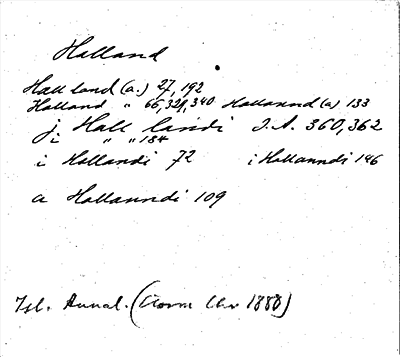 Halland
Hall land (a.) 27, 192
Halland " 66, 321, 340 Hallannd (a) 133
j. Hall landi J.A. 360, 362
i " " 184
i Hallandi 72 i Hallanndi 146
a Hallanndi 109
Isl. Annal. (Storm Chr 1888)